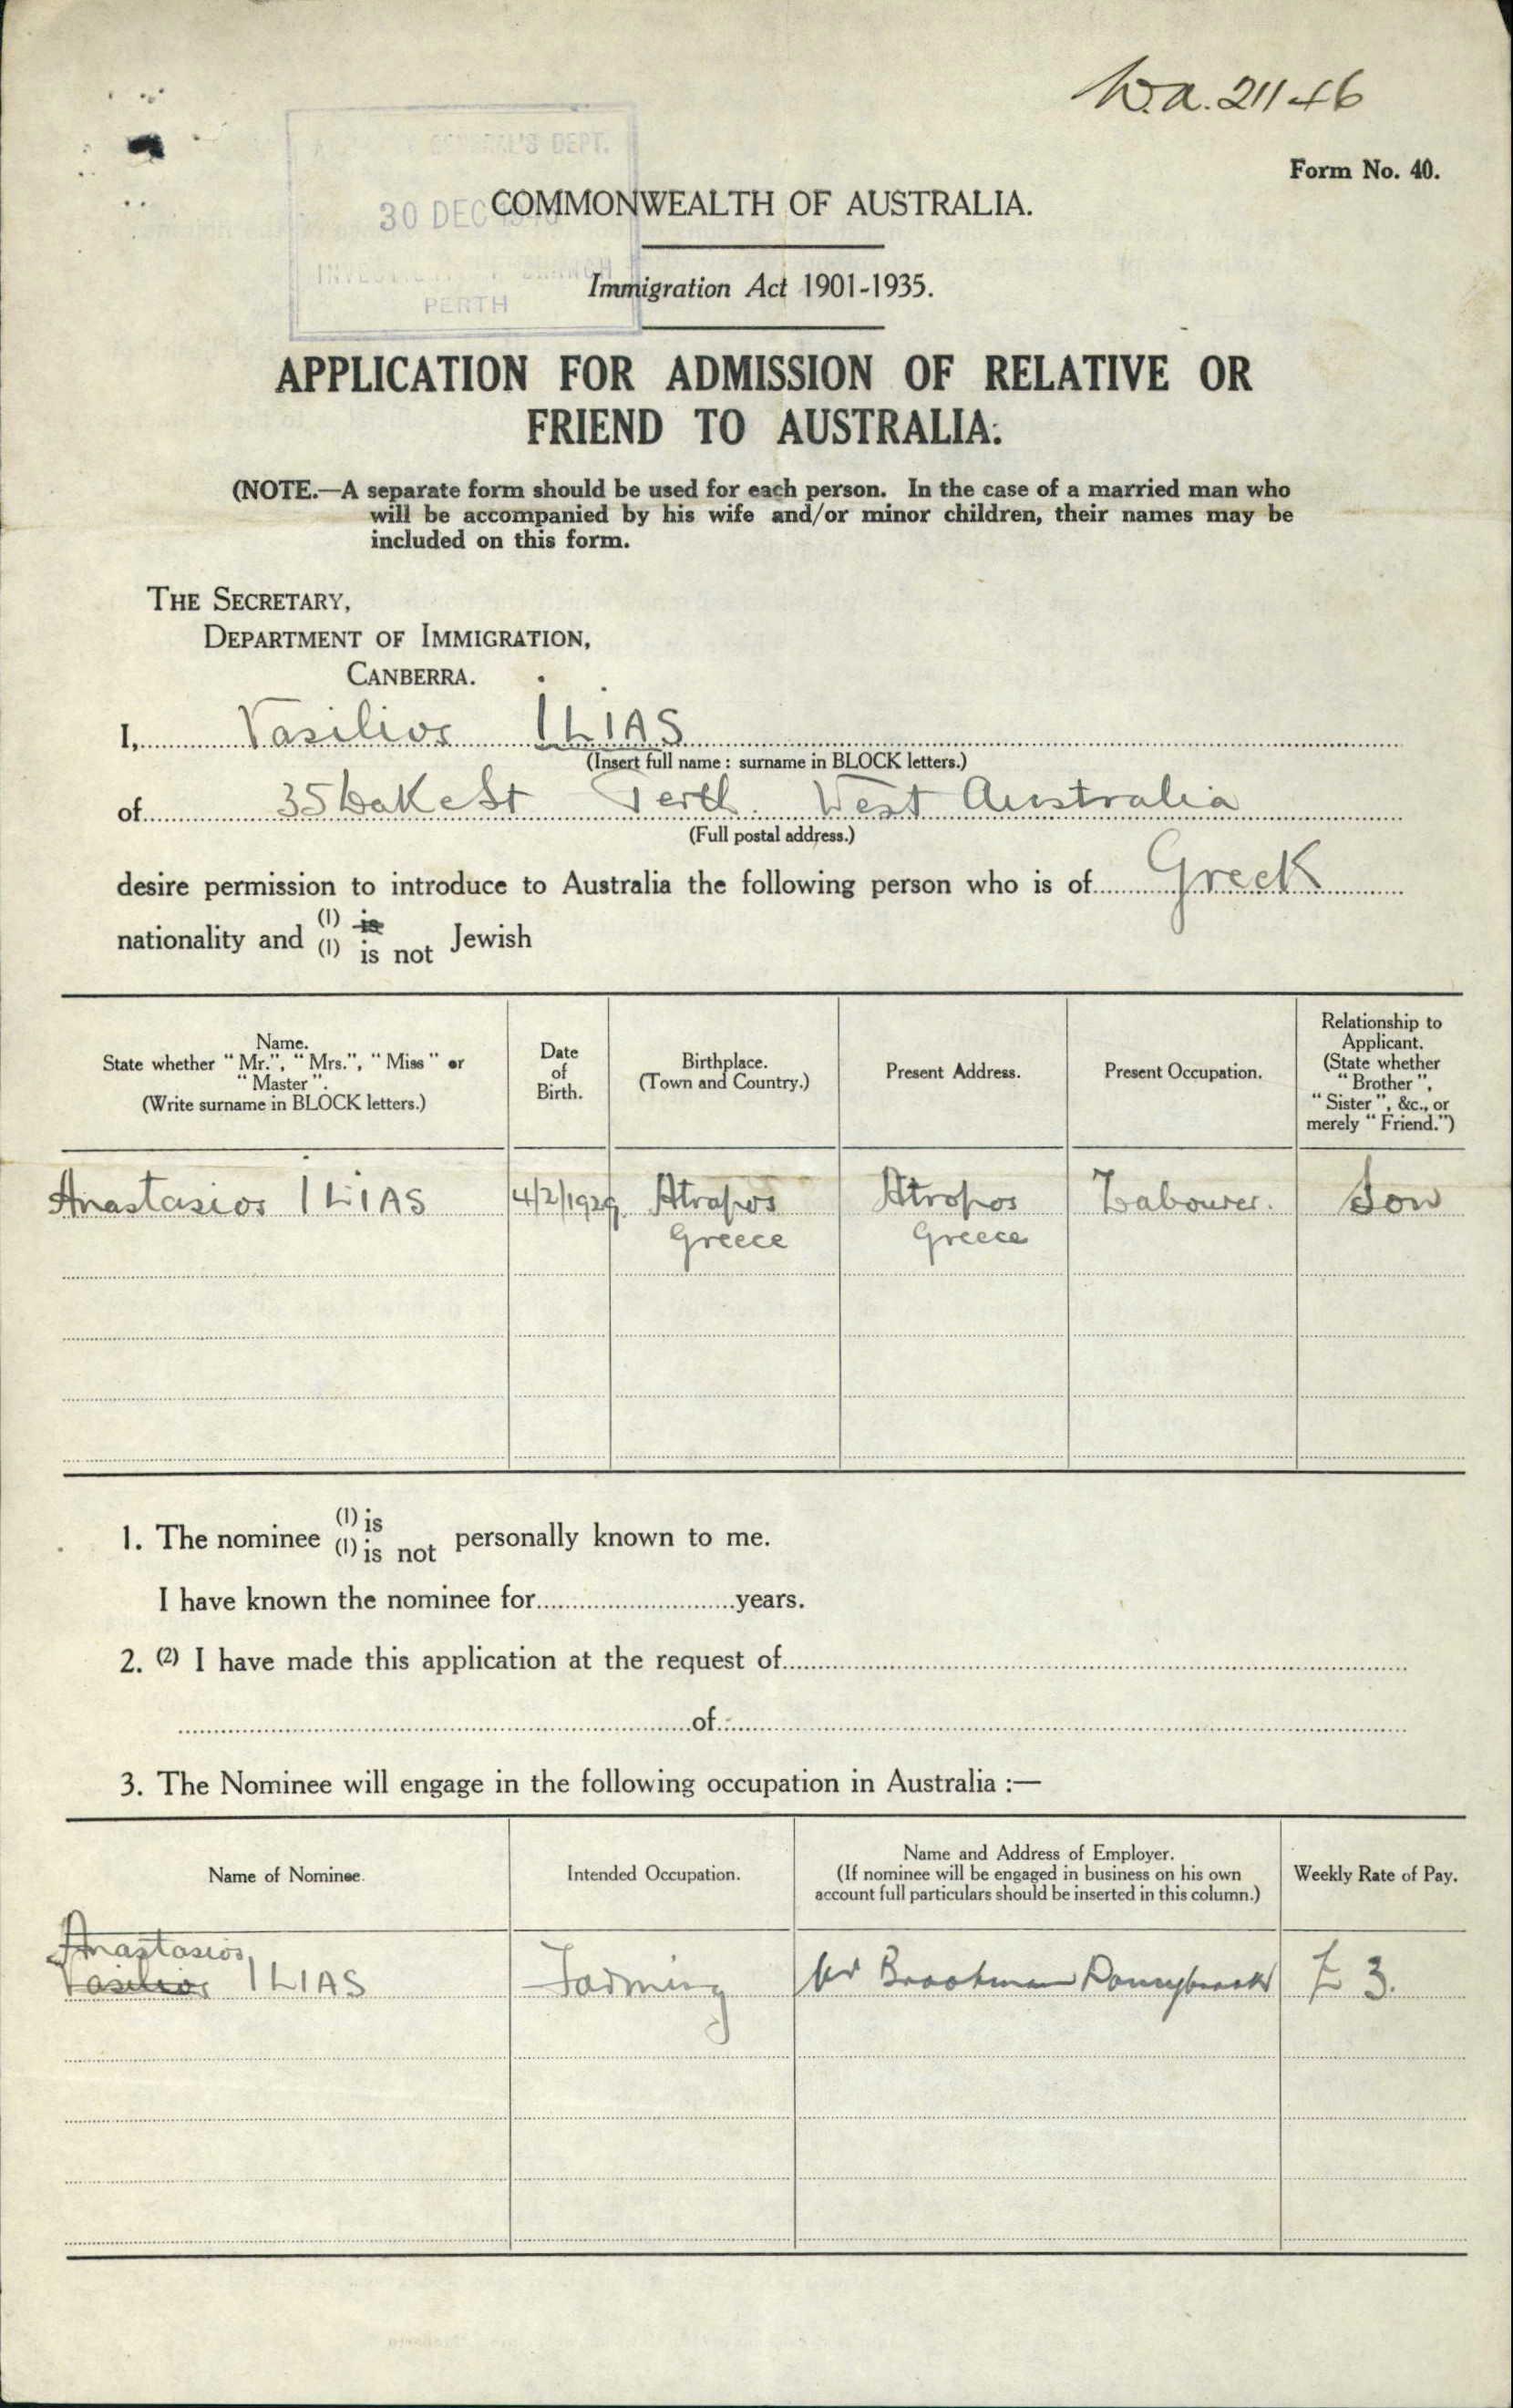 W.A. 21146
Form No. 40.
GENERAL'S DEPT.
30 DEC
COMMONWEALTH OF AUSTRALIA.
PERTH
Immigration Act 1901-1935.
APPLICATION FOR ADMISSION OF RELATIVE OR
FRIEND TO AUSTRALIA.
(NOTE.—A separate form should be used for each person. In the case of a married man who
will be accompanied by his wife and/or minor children, their names may be
included on this form.
THE SECRETARY,
DEPARTMENT OF IMMIGRATION,
CANBERRA.
I, Vasilios ILIAS
(Insert full name : surname in BLOCK letters.)
of 35 Lake St Perth. West Australia
(Full postal address.)
desire permission to introduce to Australia the following person who is of Greek
nationality and (1) is
(1) is not Jewish
Name.
State whether "Mr.", "Mrs.", "Miss" or
"Master".
(Write surname in BLOCK letters.)
Date
of
Birth.
Birthplace.
(Town and Country.)
Present Address.
Present Occupation.
Relationship to
Applicant.
(State whether
"Brother",
"Sister", &c., or
merely "Friend.")
Anastasios ILIAS 14/2/1929. Atrapos Atropos Labourer. Son
Greece Greece
1. The nominee (1) is
(1) is not personally known to me.
I have known the nominee for years.
2. (2) I have made this application at the request of
of
3. The Nominee will engage in the following occupation in Australia :—
Name of Nominee.
Intended Occupation.
Name and Address of Employer.
(If nominee will be engaged in business on his own
account full particulars should be inserted in this column.)
Weekly Rate of Pay.
Anastasios
Vasilios ILIAS Farming Mr Brookman Donnybrook £ 3.